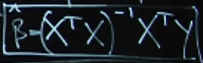 β̂=(XᵀX)⁻¹XᵀY